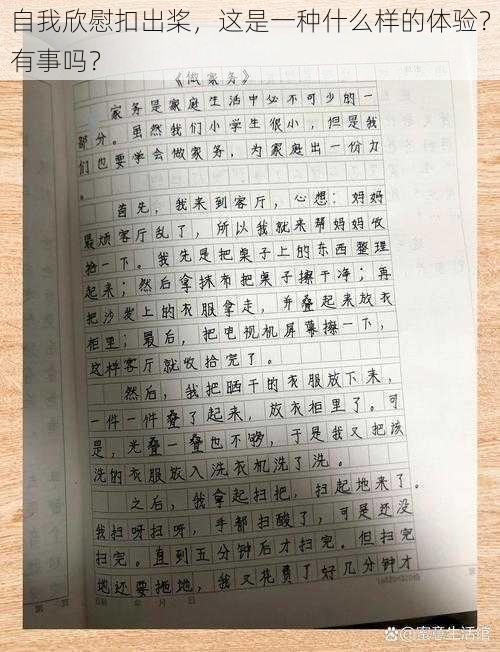 自我欣慰扣出桨，这是一种什么样的体验？
有事吗？
《做家务》
家务是家庭生活中必不可少的一
部分。虽然我们小学生很小，但是我
们也要学会做家务，为家庭出一份力
。
首先，我来到客厅，心想：妈妈
最烦客厅乱了，所以我就来帮妈妈收
拾一下。我先是把桌子上的东西整理
起来；然后拿抹布把桌子擦干净；再
把沙发上的衣服拿走，并叠起来放衣
柜里；最后，把电视机屏幕擦一下，
这样客厅就收拾完了。
然后，我把晒干的衣服放下来，
一件一件叠了起来，放衣柜里了。可
是，光叠一叠也不够，于是我又把该
洗的衣服放入洗衣机洗了洗。
之后，我拿起扫把，扫起地来了。
我扫呀扫呀，手都扫酸了，可是还没
扫完。直到五分钟后才扫完。但扫完
地还要拖地，我又花费了好几分钟才
年 月 日
蜜意生活馆